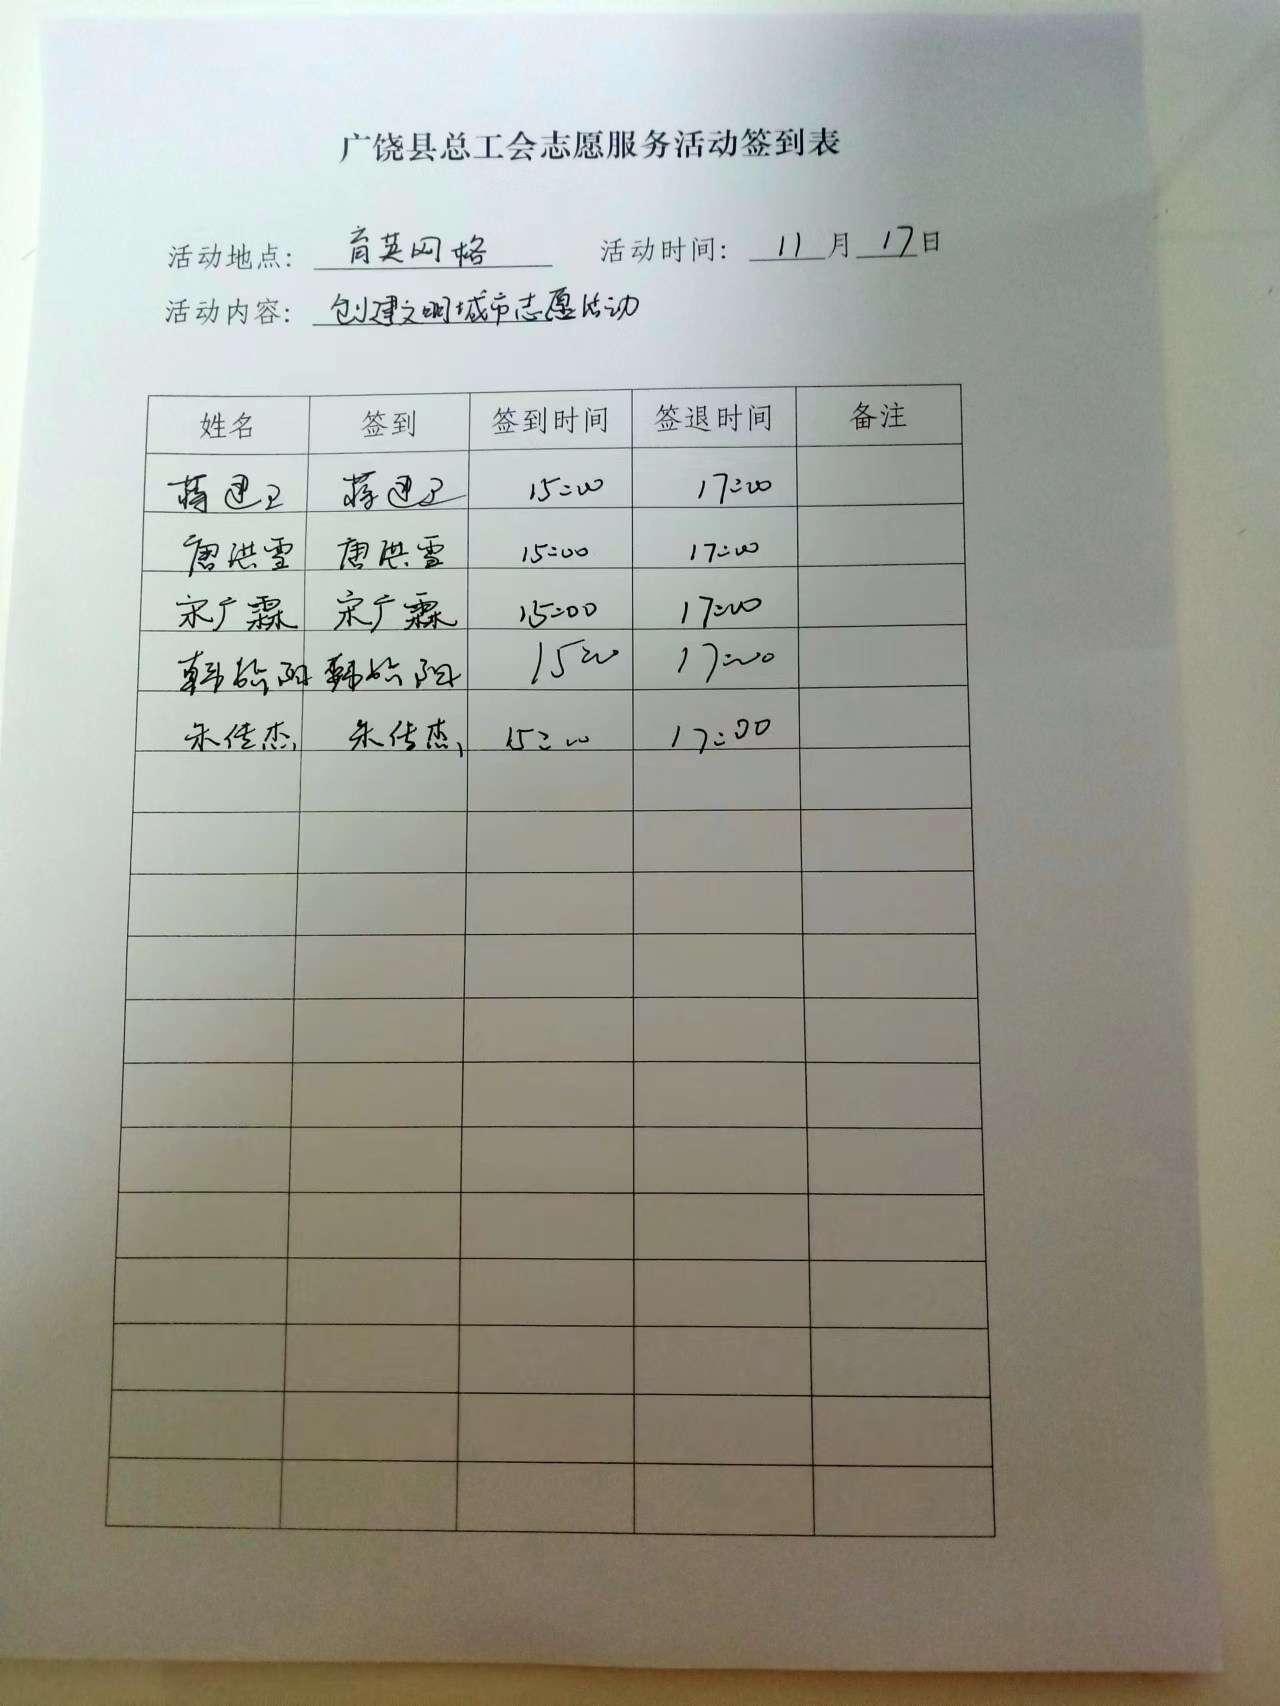 广饶县总工会志愿服务活动签到表
活动地点: 育英网格 活动时间: 11月17日
活动内容: 创建文明城市志愿活动
姓名 签到 签到时间 签退时间 备注
蒋建卫 蒋建卫 15:00 17:00
唐洪雪 唐洪雪 15:00 17:00
宋广霖 宋广霖 15:00 17:00
15:00 17:00
朱传杰 朱传杰 15:00 17:00